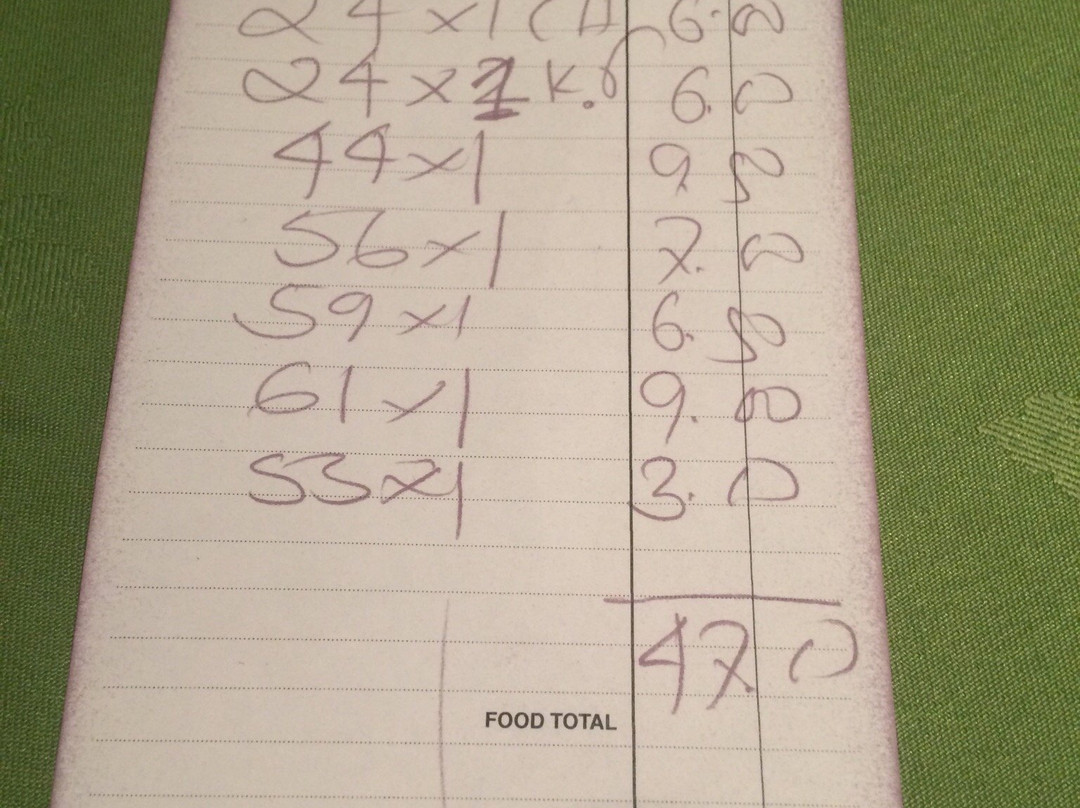 24 x 1 6.0
24 x 1 K.6 6.0
44 x 1 9.50
56 x 1 7.0
59 x 1 6.50
61 x 1 9.0
53 x 1 3.0
47.0
FOOD TOTAL